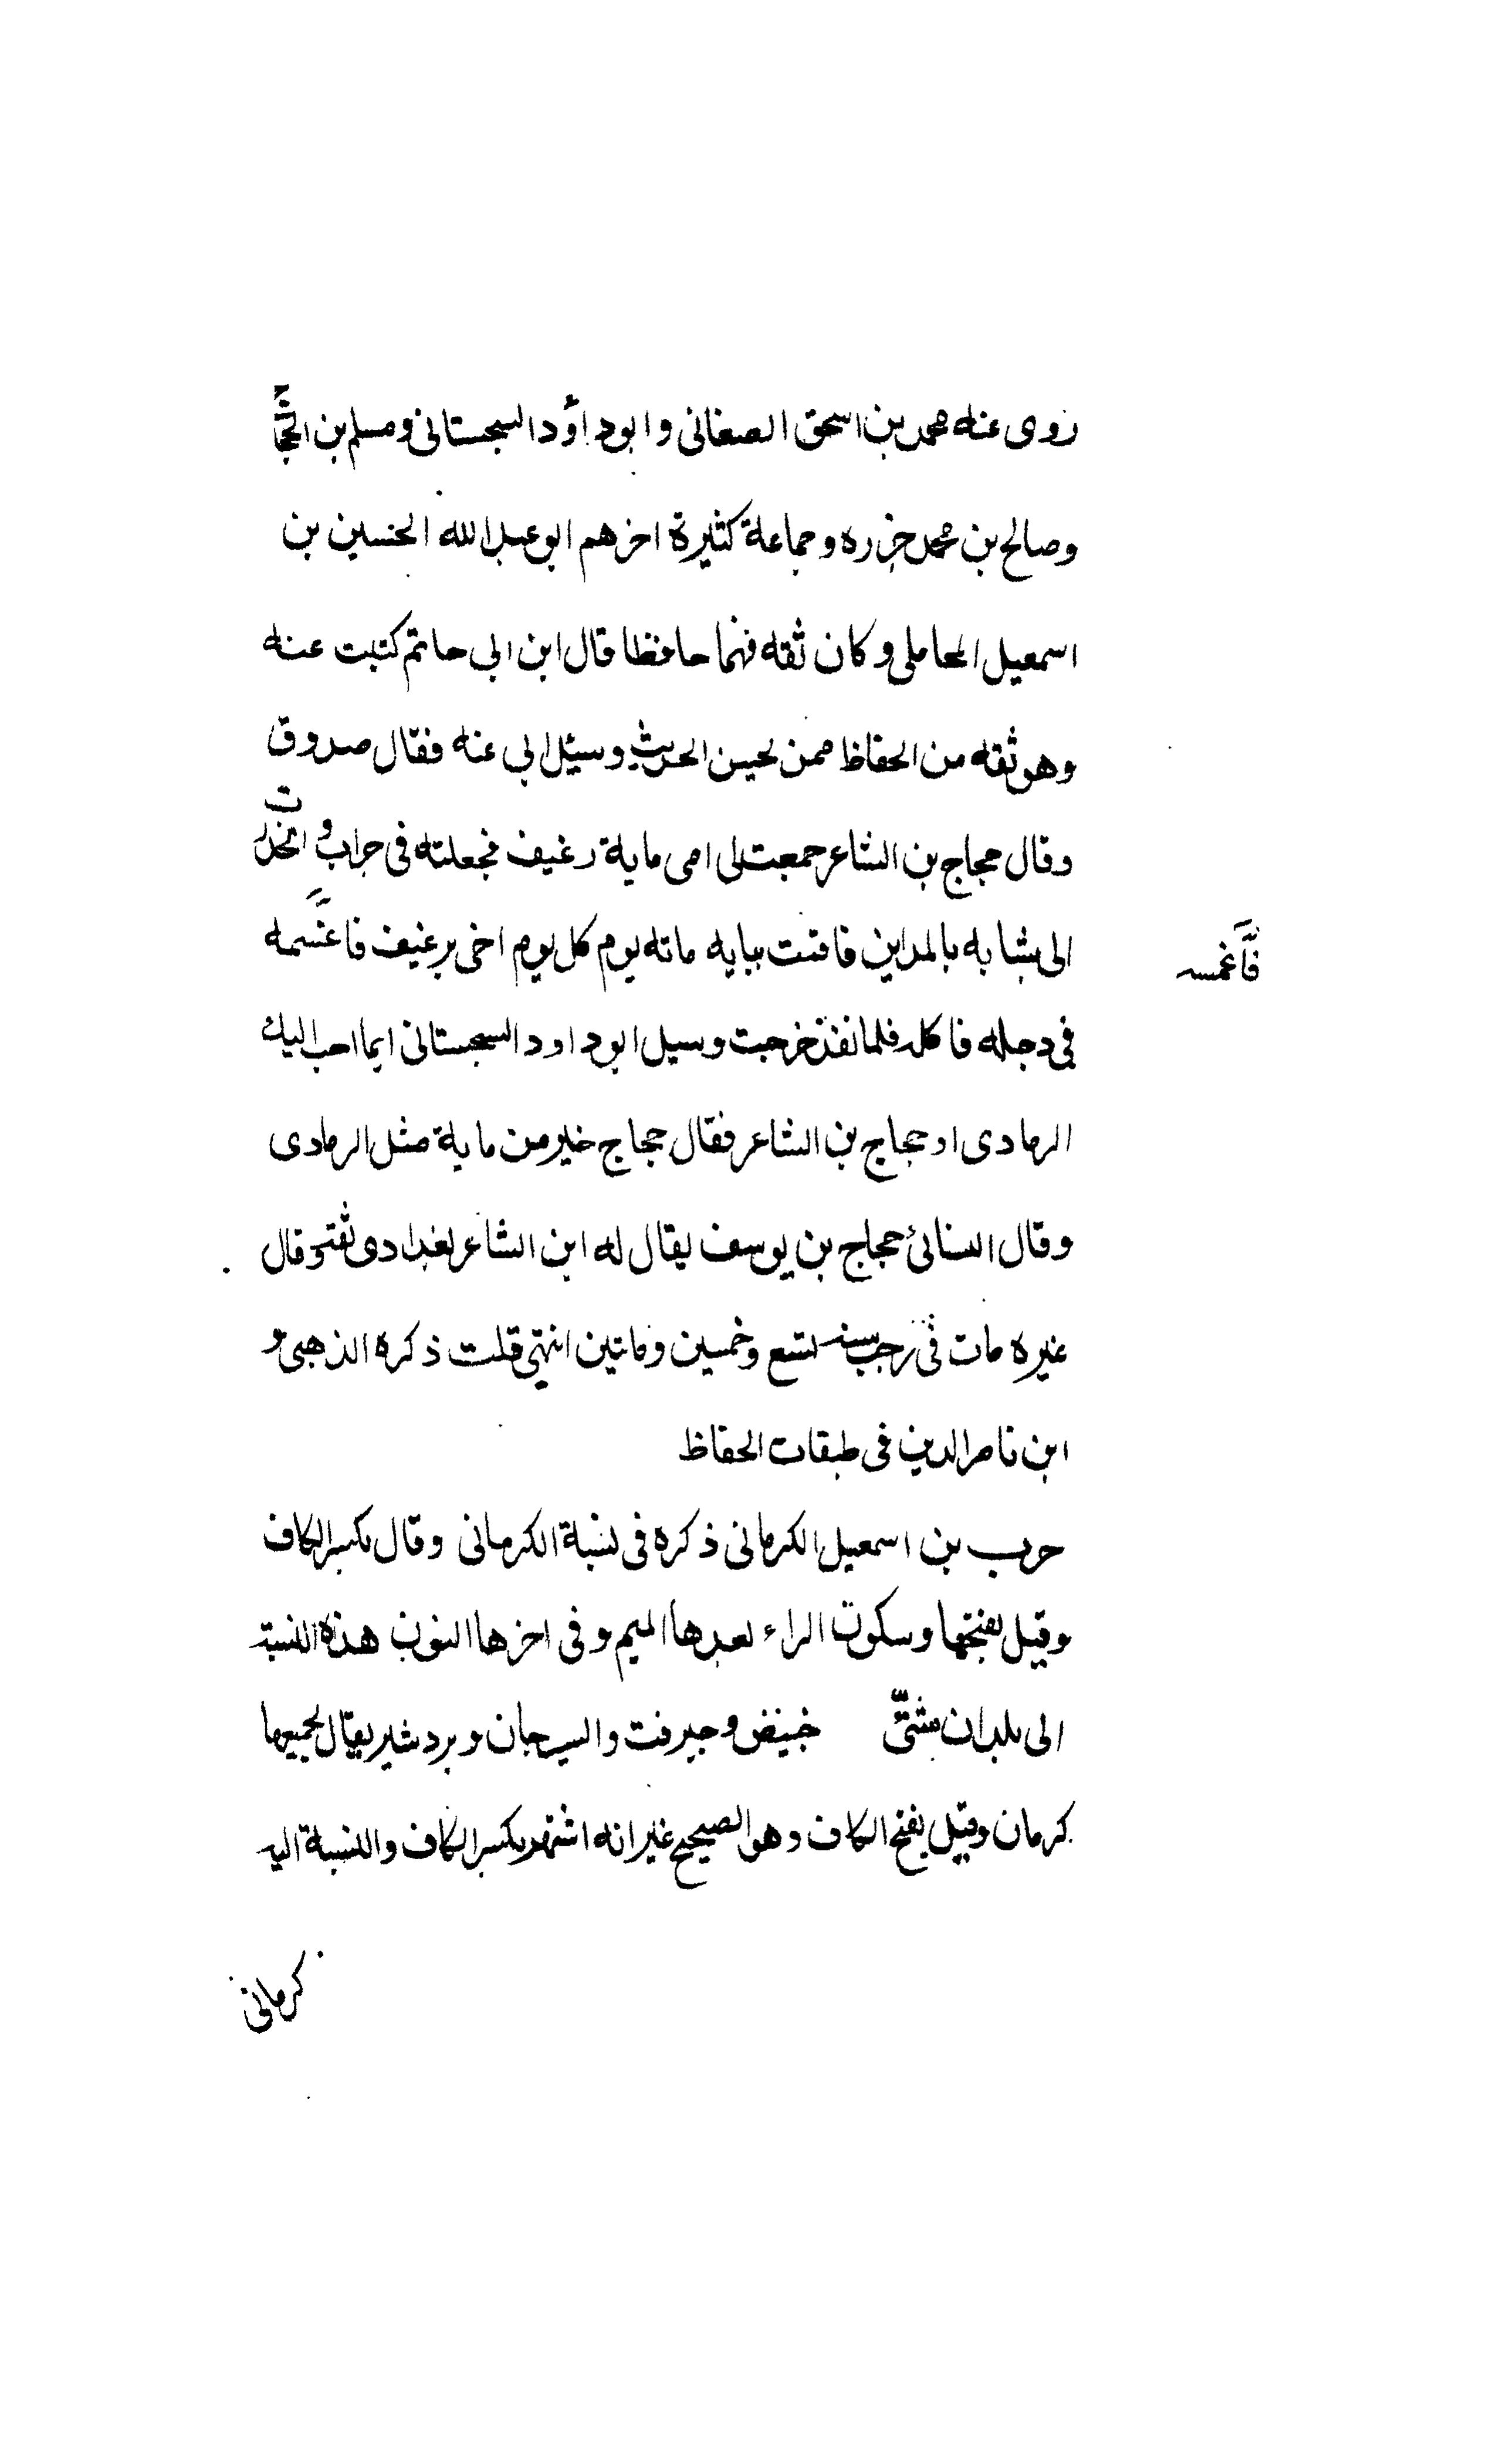 روى عنه محمد بن اسحق الصغانى وابو داؤد السجستانى ومسلم بن الحجا
وصالح بن محمد جزره وجماعة كثيرة اخرهم ابو عبد الله الحسين بن
اسمعيل المحاملى وكان ثقه فهما حافظا قال ابن ابى حاتم كتبت عنه
وهو ثقه من الحفاظ ممن يحسن الحديث وسئل ابى عنه فقال صدوق
وقال حجاج بن الشاعر جمعت لى امى ماية رغيف فجعلته فى جراب و انحدرت
الى شبابه بالمداين فاقمت ببابه ماته يوم كل يوم اخى برغيف فاغسمه
فأغمسه
فى دجله فاكله فلما نفذ خرجت وسيل ابو داود السجستانى ايما احب اليك
الرمادى او حجاج بن الشاعر فقال حجاج خير من ماية مثل الرمادى
وقال النسائئ حجاج بن يوسف يقال له ابن الشاعر بغدادى ثقة وقال
غيره مات فى رجب سنه تسع وخمسين وماتين انتهى قلت ذكره الذهبى و
ابن ناصر الدين فى طبقات الحفاظ
حرب بن اسمعيل الكرمانى ذكره فى نسبة الكرمانى وقال بكسر الكاف
وقيل بفتحها وسكون الراء بعدها الميم وفى اخرها النون هذه النسبة
الى بلدان شتىّ خبيض وجيرفت والسيرجان و بردشير يقال لجميعها
كرمان وقيل بفتح الكاف وهو الصحيح غير انه اشتهر بكسر الكاف والنسبة اليه
كرمانى